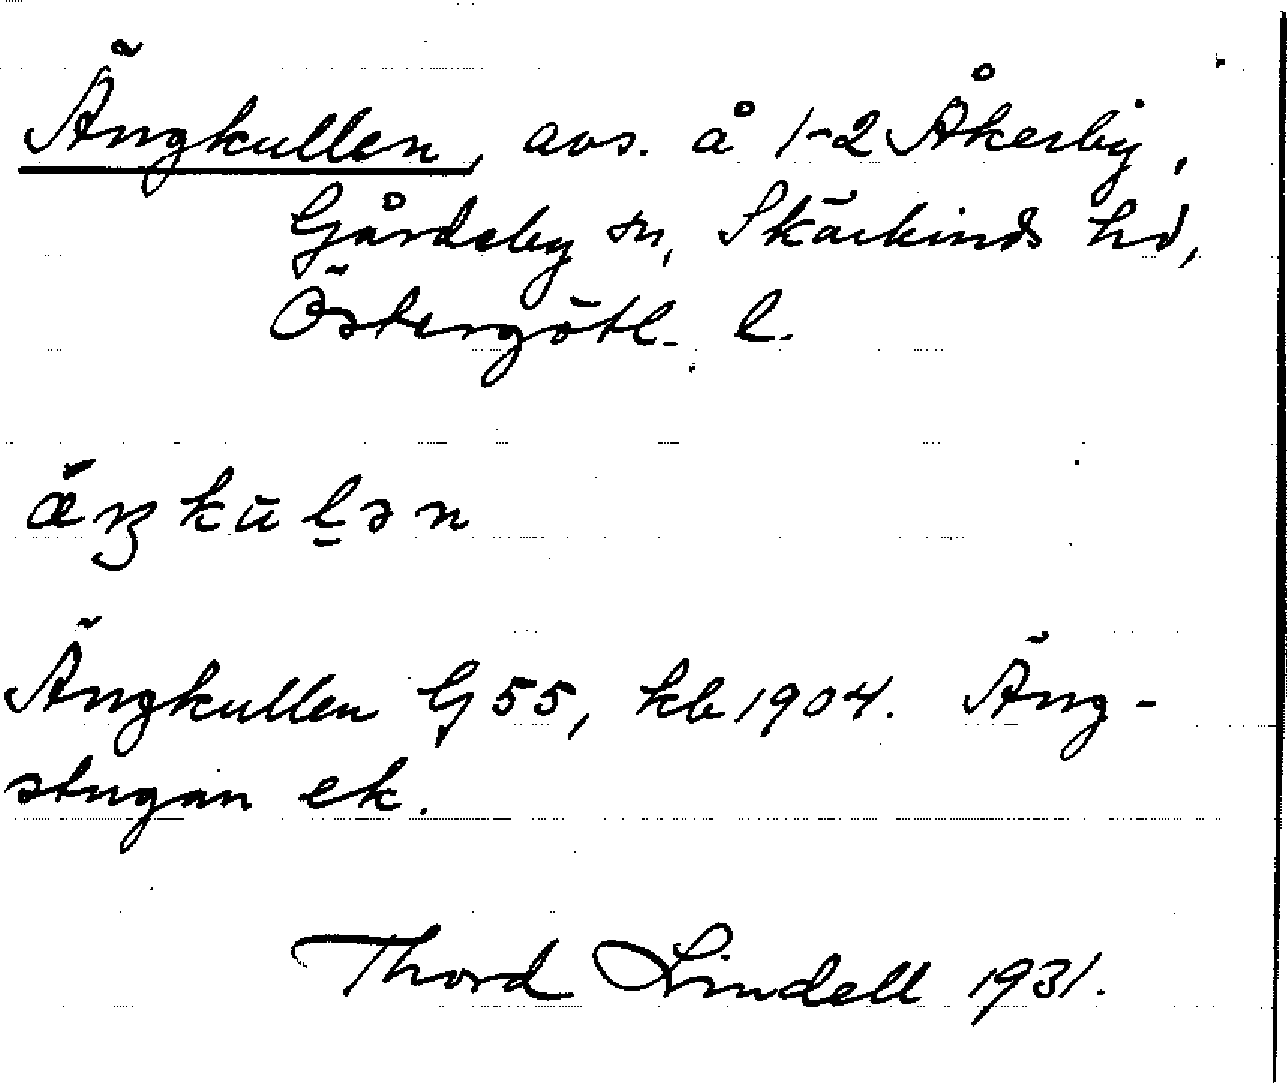 Ängkullen, avs. å 1-2 Åkerby,
Gårdeby sn, Skärkinds hd,
Östergötl. l.
ä́ŋkūl̠ən
Ängkullen G 55, kb 1904. Äng-
stugan ek.
Thord Lindell 1931.